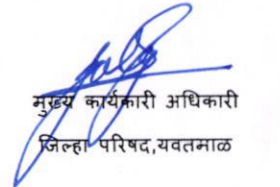 मुख्य कार्यकारी अधिकारी
जिल्हा परिषद,यवतमाळ